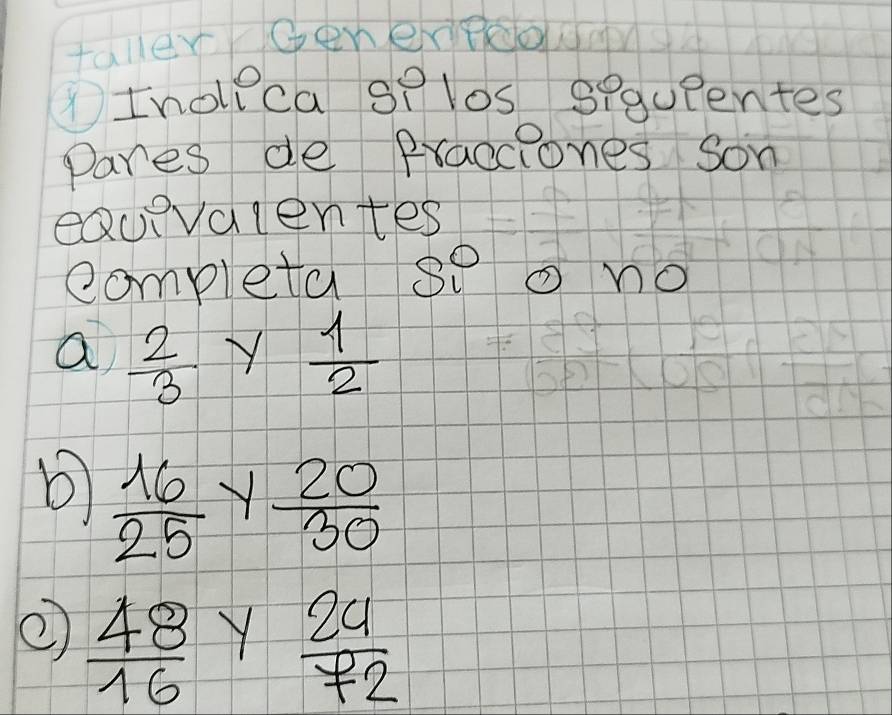 taller Generico
1) Indica si los siguientes
pares de fracciones son
equivalentes
completa si o no
a) 2/3 y 1/2
b) 16/25 y 20/30
c) 48/16 y 24/72